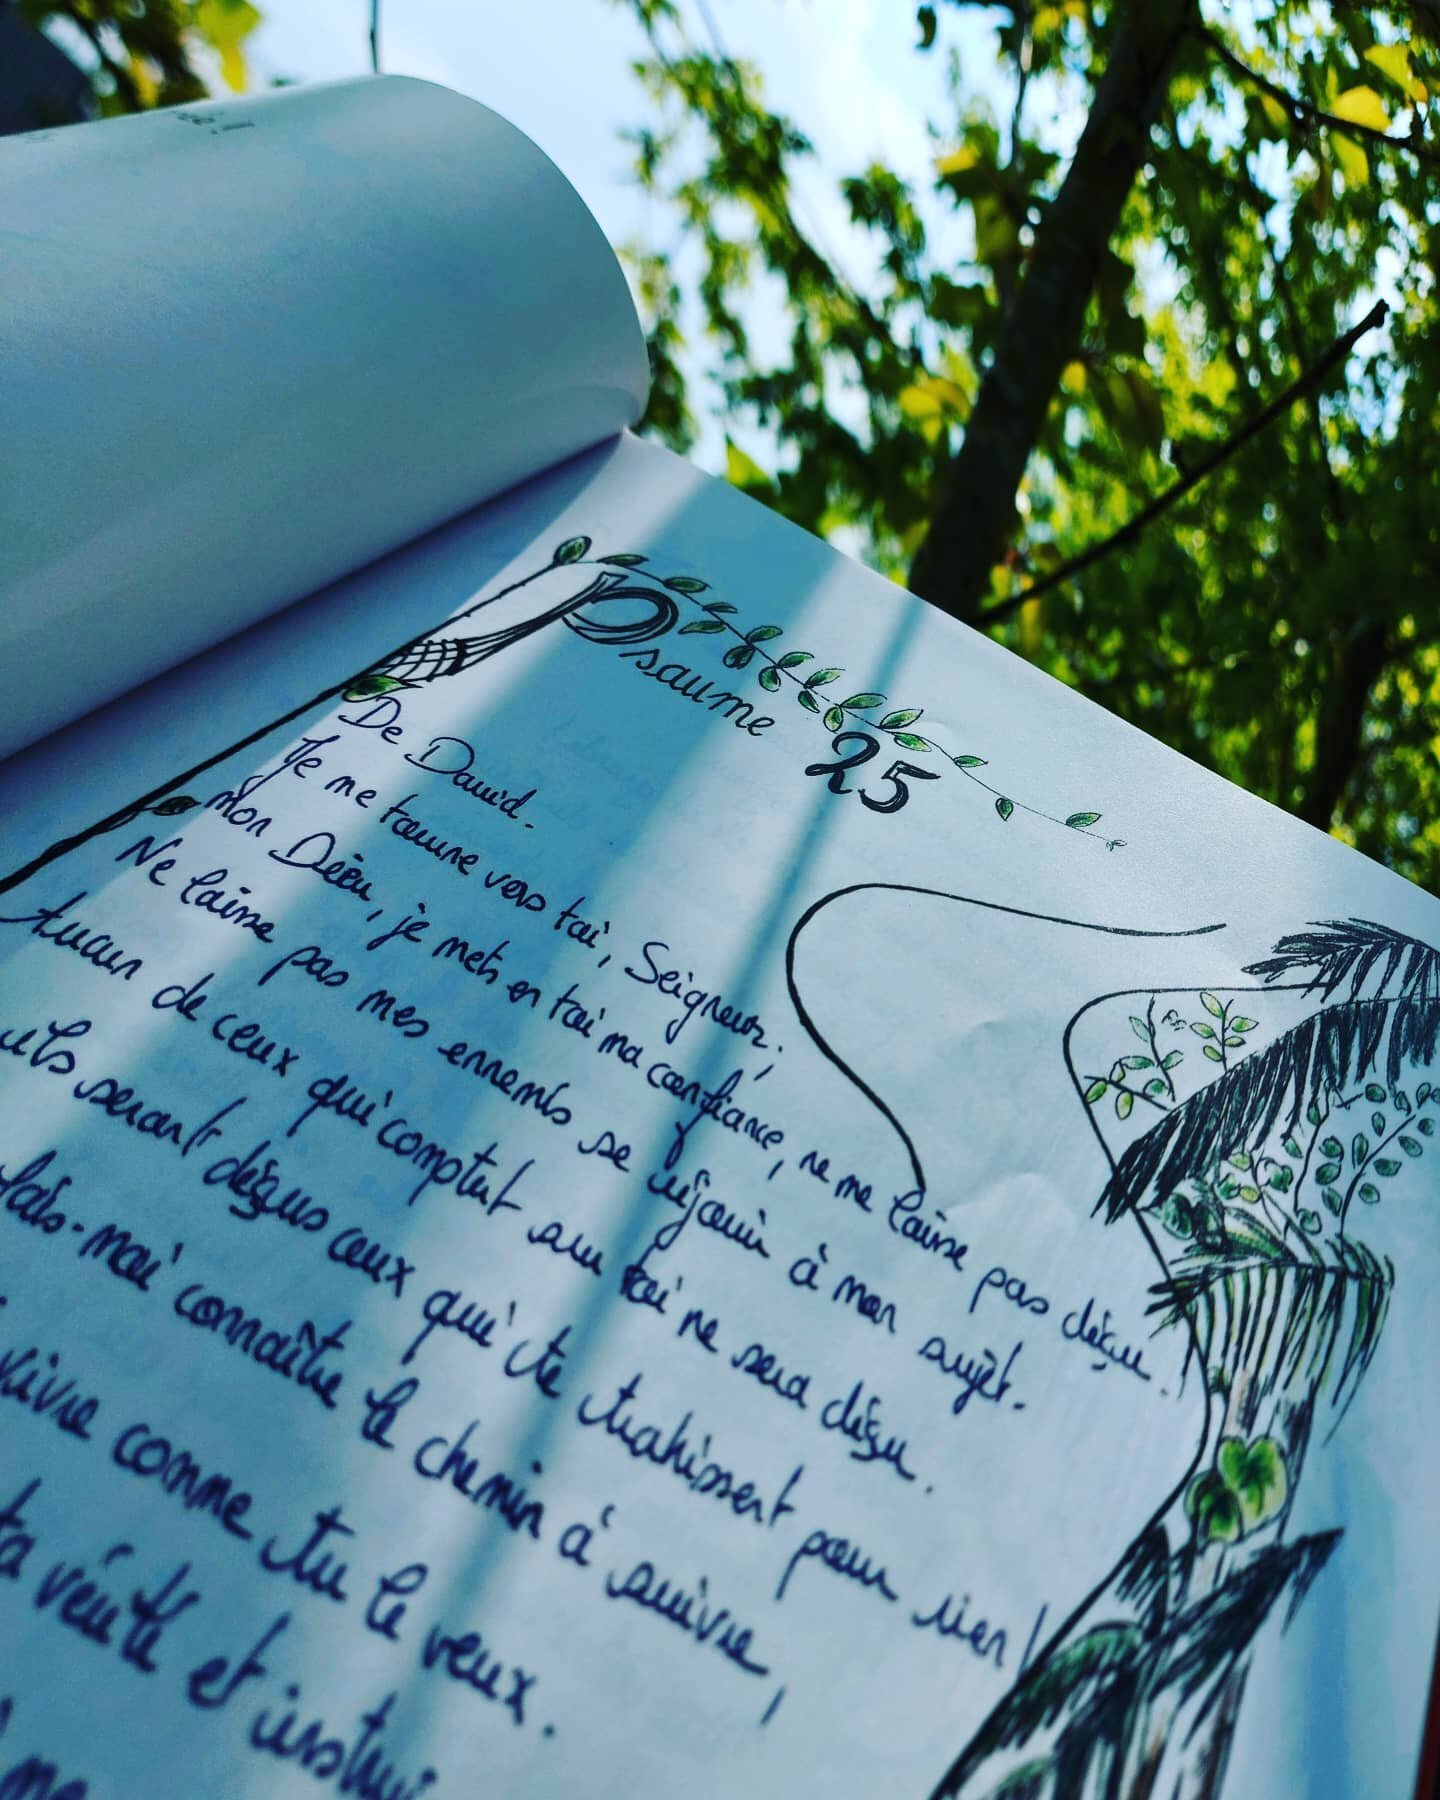 Psaume 25
De David.
Je me tourne vers toi, Seigneur;
mon Dieu, je mets en toi ma confiance, ne me laisse pas déçu.
Ne laisse pas mes ennemis se réjouir à mon sujet.
Aucun de ceux qui comptent sur toi ne sera déçu.
ils seront déçus ceux qui te trahissent pour rien!
fais-moi connaître le chemin à suivre,
vivre comme tu le veux.
ta vérité et
me